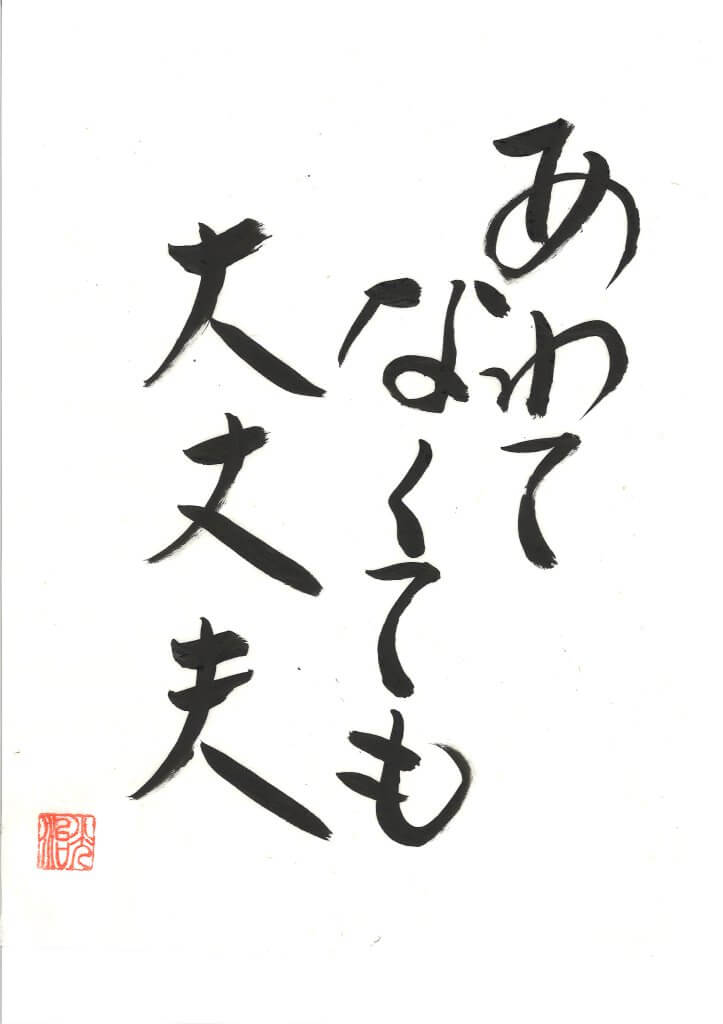 あわて
なくても
大丈夫